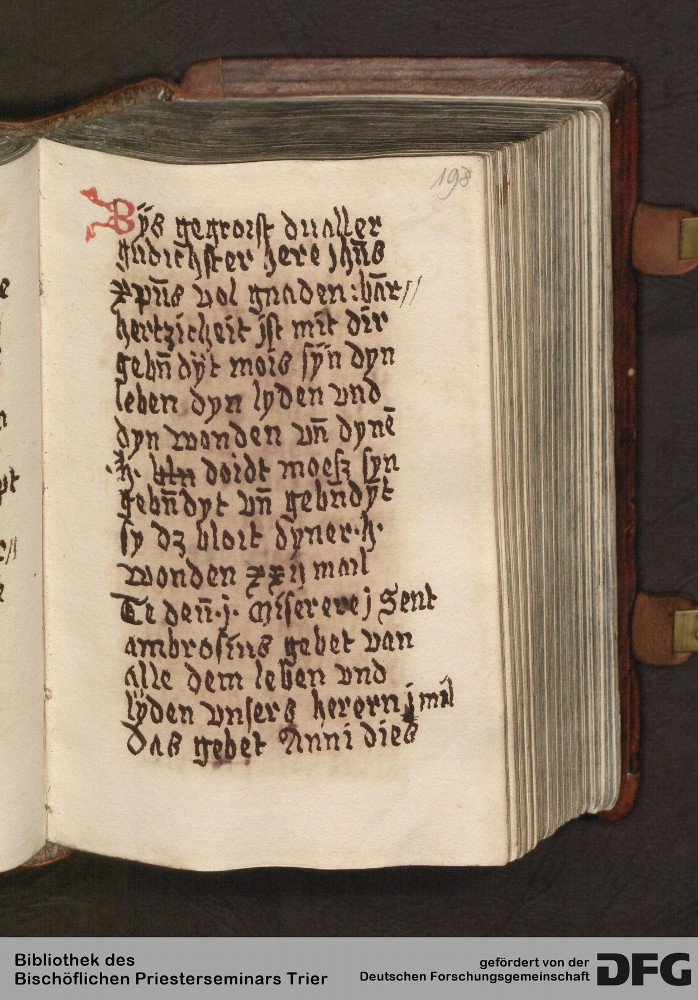 198
Bÿs gegroist du aller
gndichster here jhūs
xpūs vol gnaden : bār//
hertzicheit jst mit dir
gebn̄ dÿt mois sÿn dyn
leben dyn lyden vnd
dyn wonden vn̄ dynē
.h. doidt moesz syn
gebn̄dyt vn̄ gebn̄dÿt
sy dz bloit dyner .h.
wonden xxij mail
Te deu̅ .j. Miserere j Sent
ambrosius gebet van
alle dem leben vnd
lÿden vnsers herern j mal
Das gebet Anni dies
Bibliothek des
Bischöflichen Priesterseminars Trier
gefördert von der
Deutschen Forschungsgemeinschaft
DFG